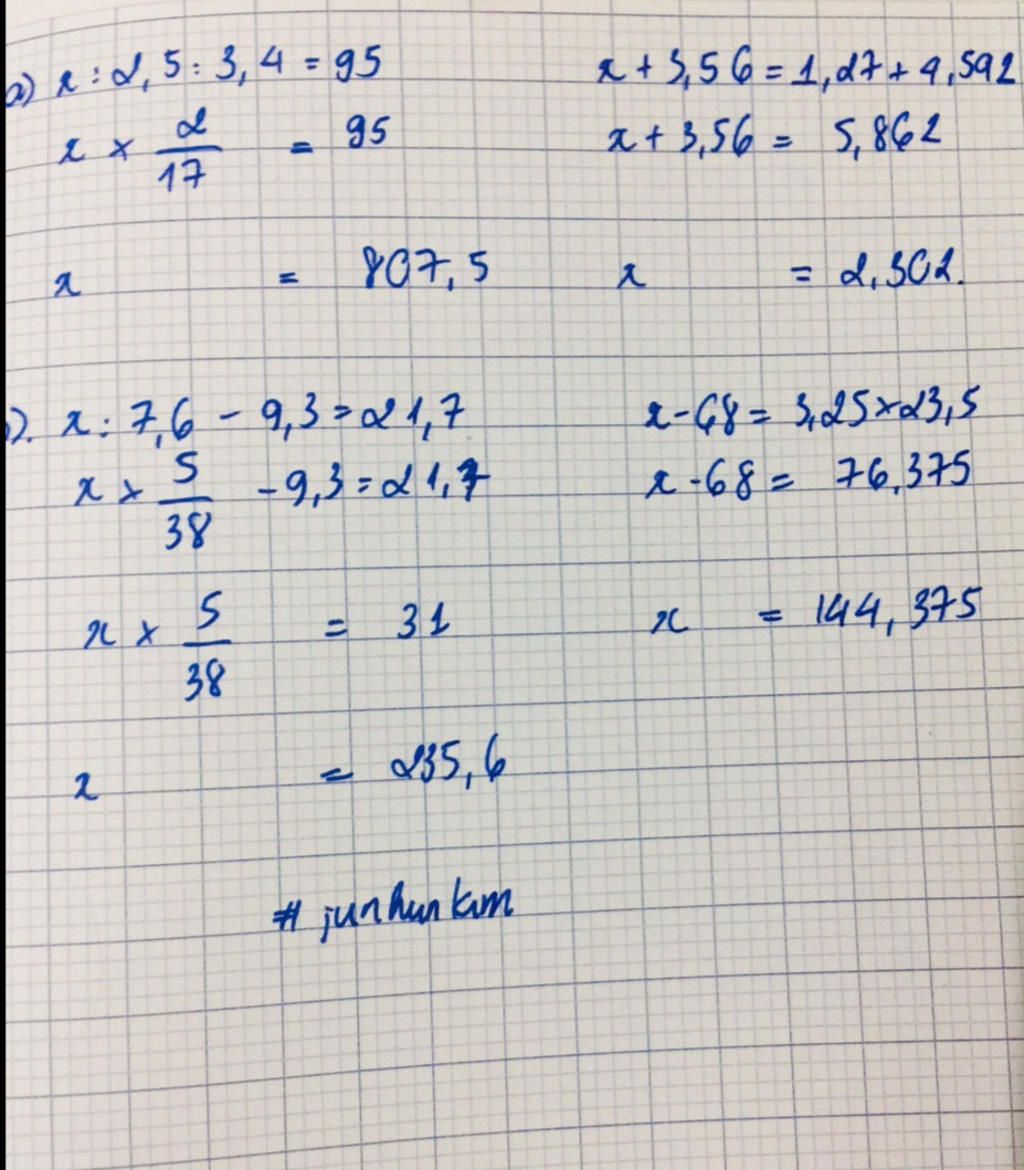 a) x : 2,5 : 3,4 = 95
x × 2/17 = 95
x = 807,5
x + 3,56 = 1,27 + 4,592
x + 3,56 = 5,862
x = 2,302.
). x : 7,6 - 9,3 = 21,7
x × 5/38 - 9,3 = 21,7
x × 5/38 = 31
x = 235,6
x - 68 = 3,25 × 23,5
x - 68 = 76,375
x = 144,375
# junhunkim